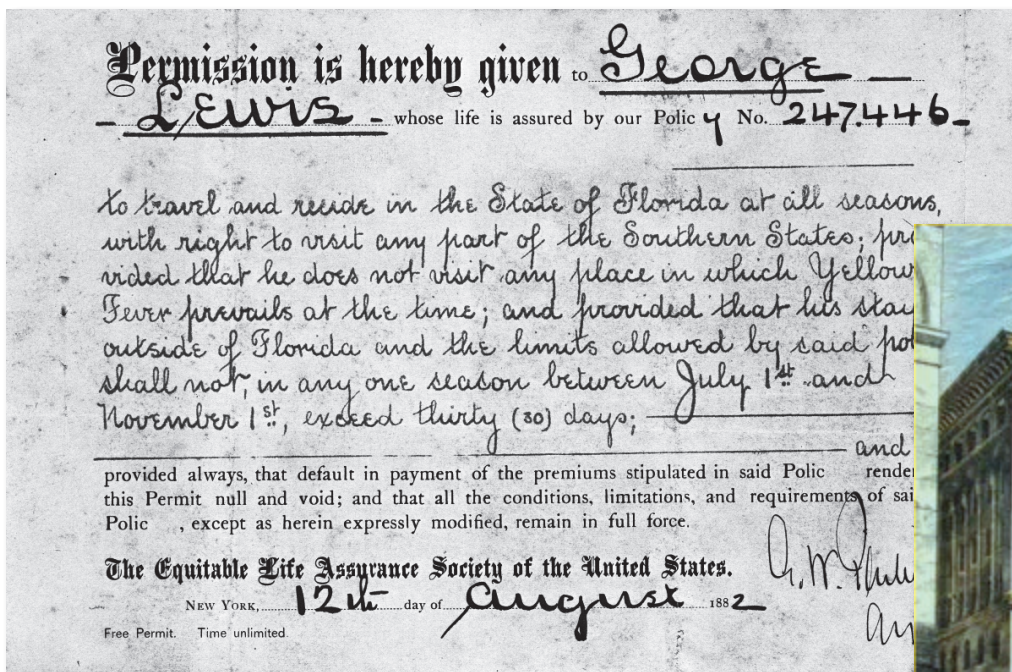 Permission is hereby given to George —
- Lewis - whose life is assured by our Policy No. 247.446-
to travel and reside in the State of Florida at all seasons,
with right to visit any part of the Southern States; pro
vided that he does not visit any place in which Yellow
Fever prevails at the time; and provided that his stay
outside of Florida and the limits allowed by said pol
shall not, in any one season between July 1st and
November 1st, exceed thirty (30) days;
and
provided always, that default in payment of the premiums stipulated in said Polic render
this Permit null and void; and that all the conditions, limitations, and requirements of sai
Polic , except as herein expressly modified, remain in full force.
The Equitable Life Assurance Society of the United States.
G. W.
NEW YORK, 12th day of August 1882
Free Permit. Time unlimited.